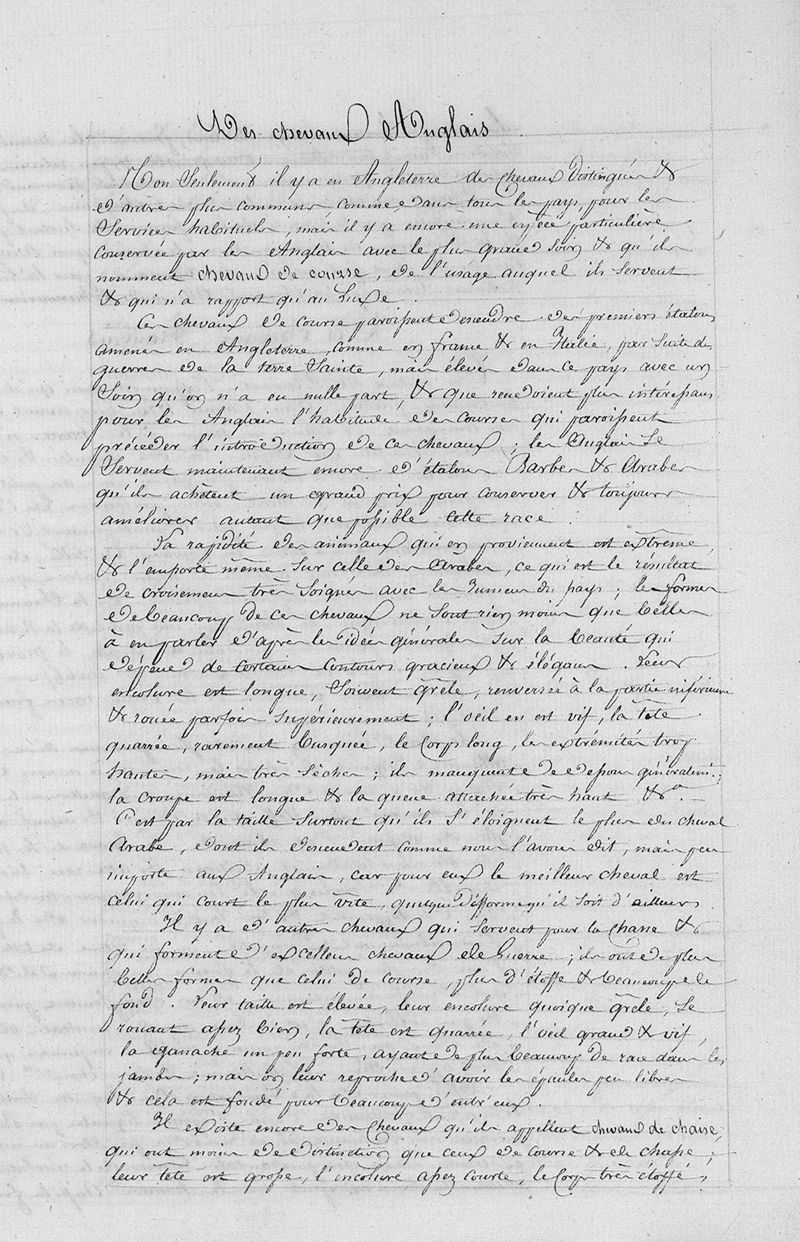 Des chevaux Anglais
Non seulement il y a en Angleterre des chevaux distingués &
d'autres plus communs comme dans tous les pays pour les
services habituels, mais il y a encore une espèce particulière
conservée par les Anglais avec le plus grand soin & qu'ils
nomment chevaux de course, de l'usage auquel ils servent
& qui n'a rapport qu'au luxe.
Ces chevaux de course paroissent descendre des premiers étalons
amenés en Angleterre, comme en france & en Italie, par suite des
guerres de la terre Sainte, mais élevés dans ce pays avec un
soin qu'on n'a eu nulle part, & que rendoient plus intéressans
pour les Anglais l'habitude des courses qui paroissent
précéder l'introduction de ces chevaux ; les Anglais se
servent maintenant encore d'étalons Barbes & Arabes
qu'ils achètent un grand prix pour conserver & toujours
améliorer autant que possible cette race.
La rapidité des animaux qui en proviennent est extrême,
& l'emporte même sur celle des Arabes, ce qui est le résultat
de croisemens très soignés avec les Jumens du pays ; les formes
de beaucoup de ces chevaux ne sont rien moins que belles
à en parler d'après les idées générales sur la beauté qui
dépend de certains contours gracieux & élégans. Leur
encolure est longue, souvent grêle, renversée à la partie inférieure
& rouée parfois supérieurement ; l'oéil en est vif, la tête
quarrée, rarement busquée, le corps long, les extrémités trop
hautes, mais très sèches ; ils manquent de dessous généralemt ;
la croupe est longue & la queue attachée très haut &a.
C'est par la taille surtout qu'ils s'éloignent le plus du cheval
Arabe, dont ils descendent comme nous l'avons dit, mais peu
importe aux Anglais, car pour eux le meilleur cheval est
celui qui court le plus vite, quelque difforme qu'il soit d'ailleurs.
Il y a d'autres chevaux qui servent pour la chasse &
qui forment d'excellens chevaux de Guerre ; ils ont de plus
belles formes que celui de course, plus d'étoffe & beaucoup de
fond. Leur taille est élevée, leur encolure quoique grêle, se
rouant assez bien, la tête est quarrée, l'oeil grand & vif,
la ganache un peu forte, ayant de plus beaucoup de race dans les
jambes ; mais on leur reproche d'avoir les épaules peu libres
& cela est fondé pour beaucoup d'entr'eux.
Il existe encore des chevaux qu'ils appellent chevaux de chaise,
qui ont moins de distinction que ceux de course & de chasse ;
leur tête est grosse, l'encolure assez courte, le corps très étoffé,